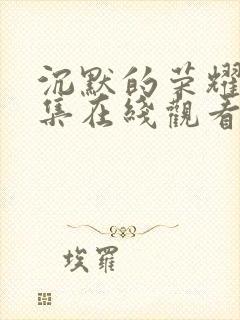 沉默的荣耀
集在线觀看
埃羅